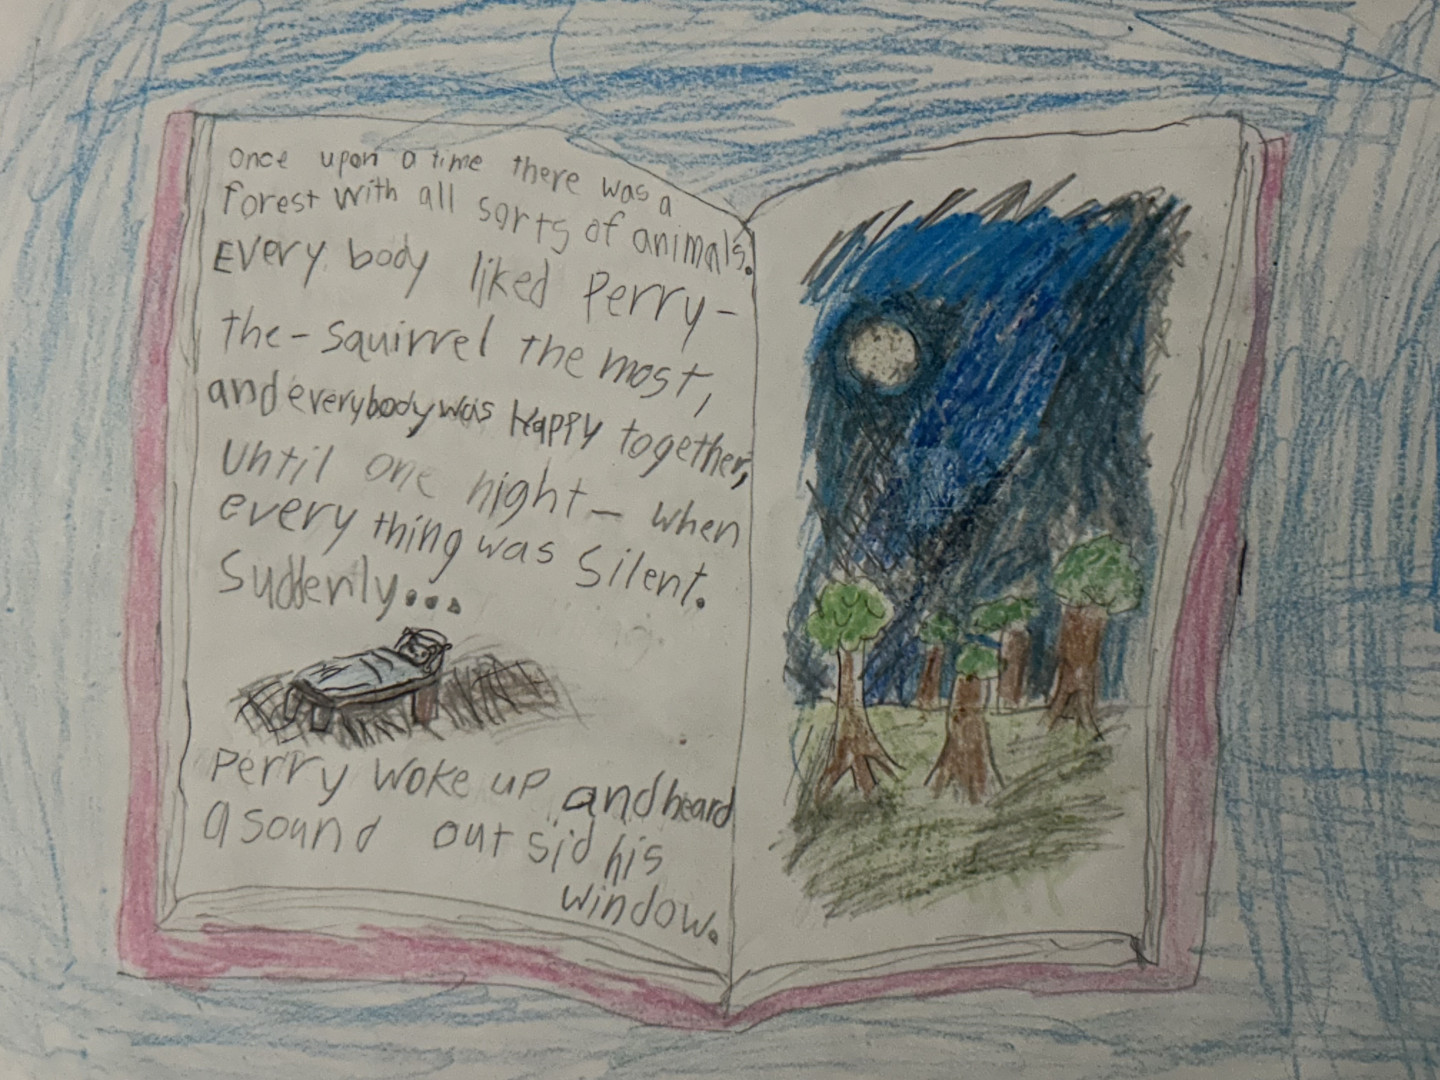 once upon a time there was a
forest with all sorts of animals.
Every body liked Perry-
the-squirrel the most,
and everybody was Happy together,
Until one night - when
every thing was Silent.
Suddenly...
Perry woke up and heard
a sound out sid his
window.